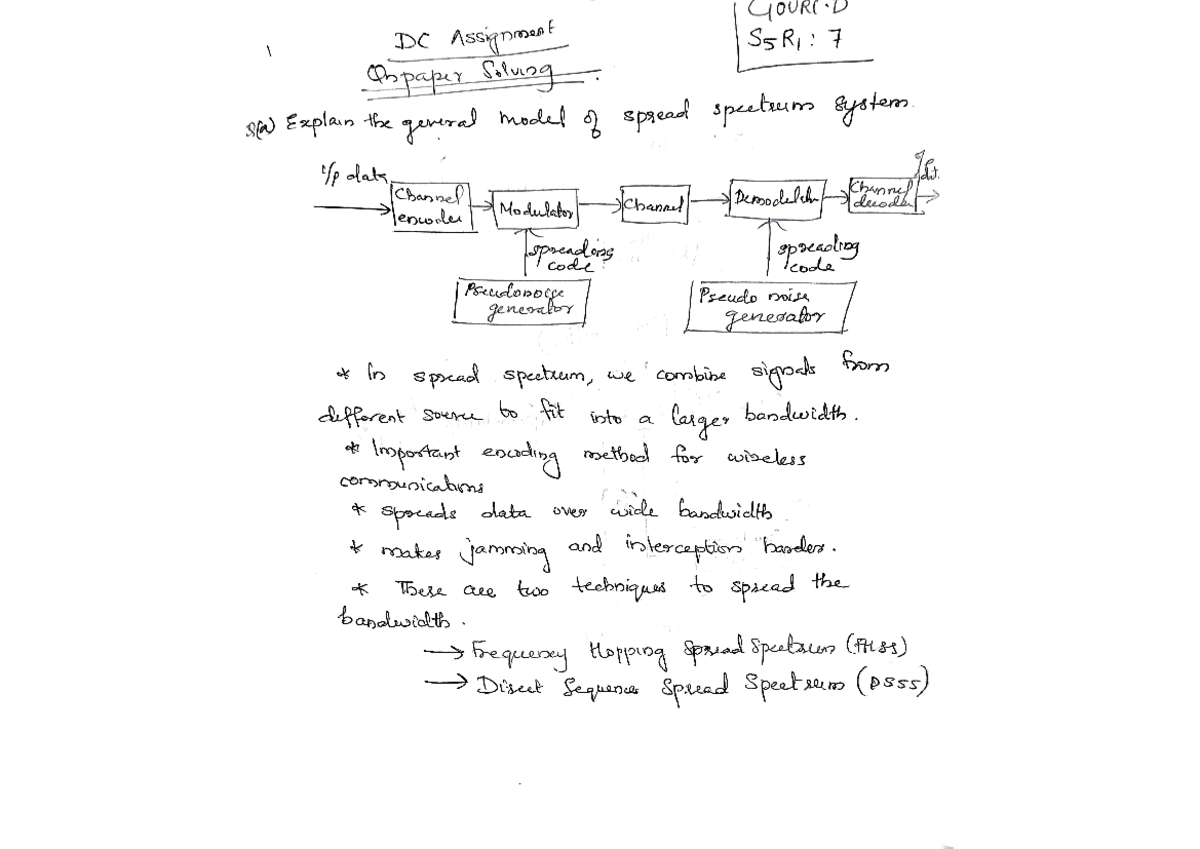 GOURI.D
S5R1 : 7
1
DC Assignment
Qn paper Solving
i/p data
Channel
encoder
Modulator
Channel
Demodulator
Channel
decoder
spreading
code
spreading
code
Pseudonoise
generator
Pseudo noise
generator
(a) Explain the general model of spread spectrum system.
* In spread spectrum, we combine signals from
different source to fit into a larger bandwidth.
* Important encoding method for wireless
communications
* spreads data over wide bandwidth
* makes jamming and interception harder.
* These are two techniques to spread the
bandwidth.
→ Frequency Hopping Spread Spectrum (FHSS)
→ Direct Sequence Spread Spectrum (DSSS)